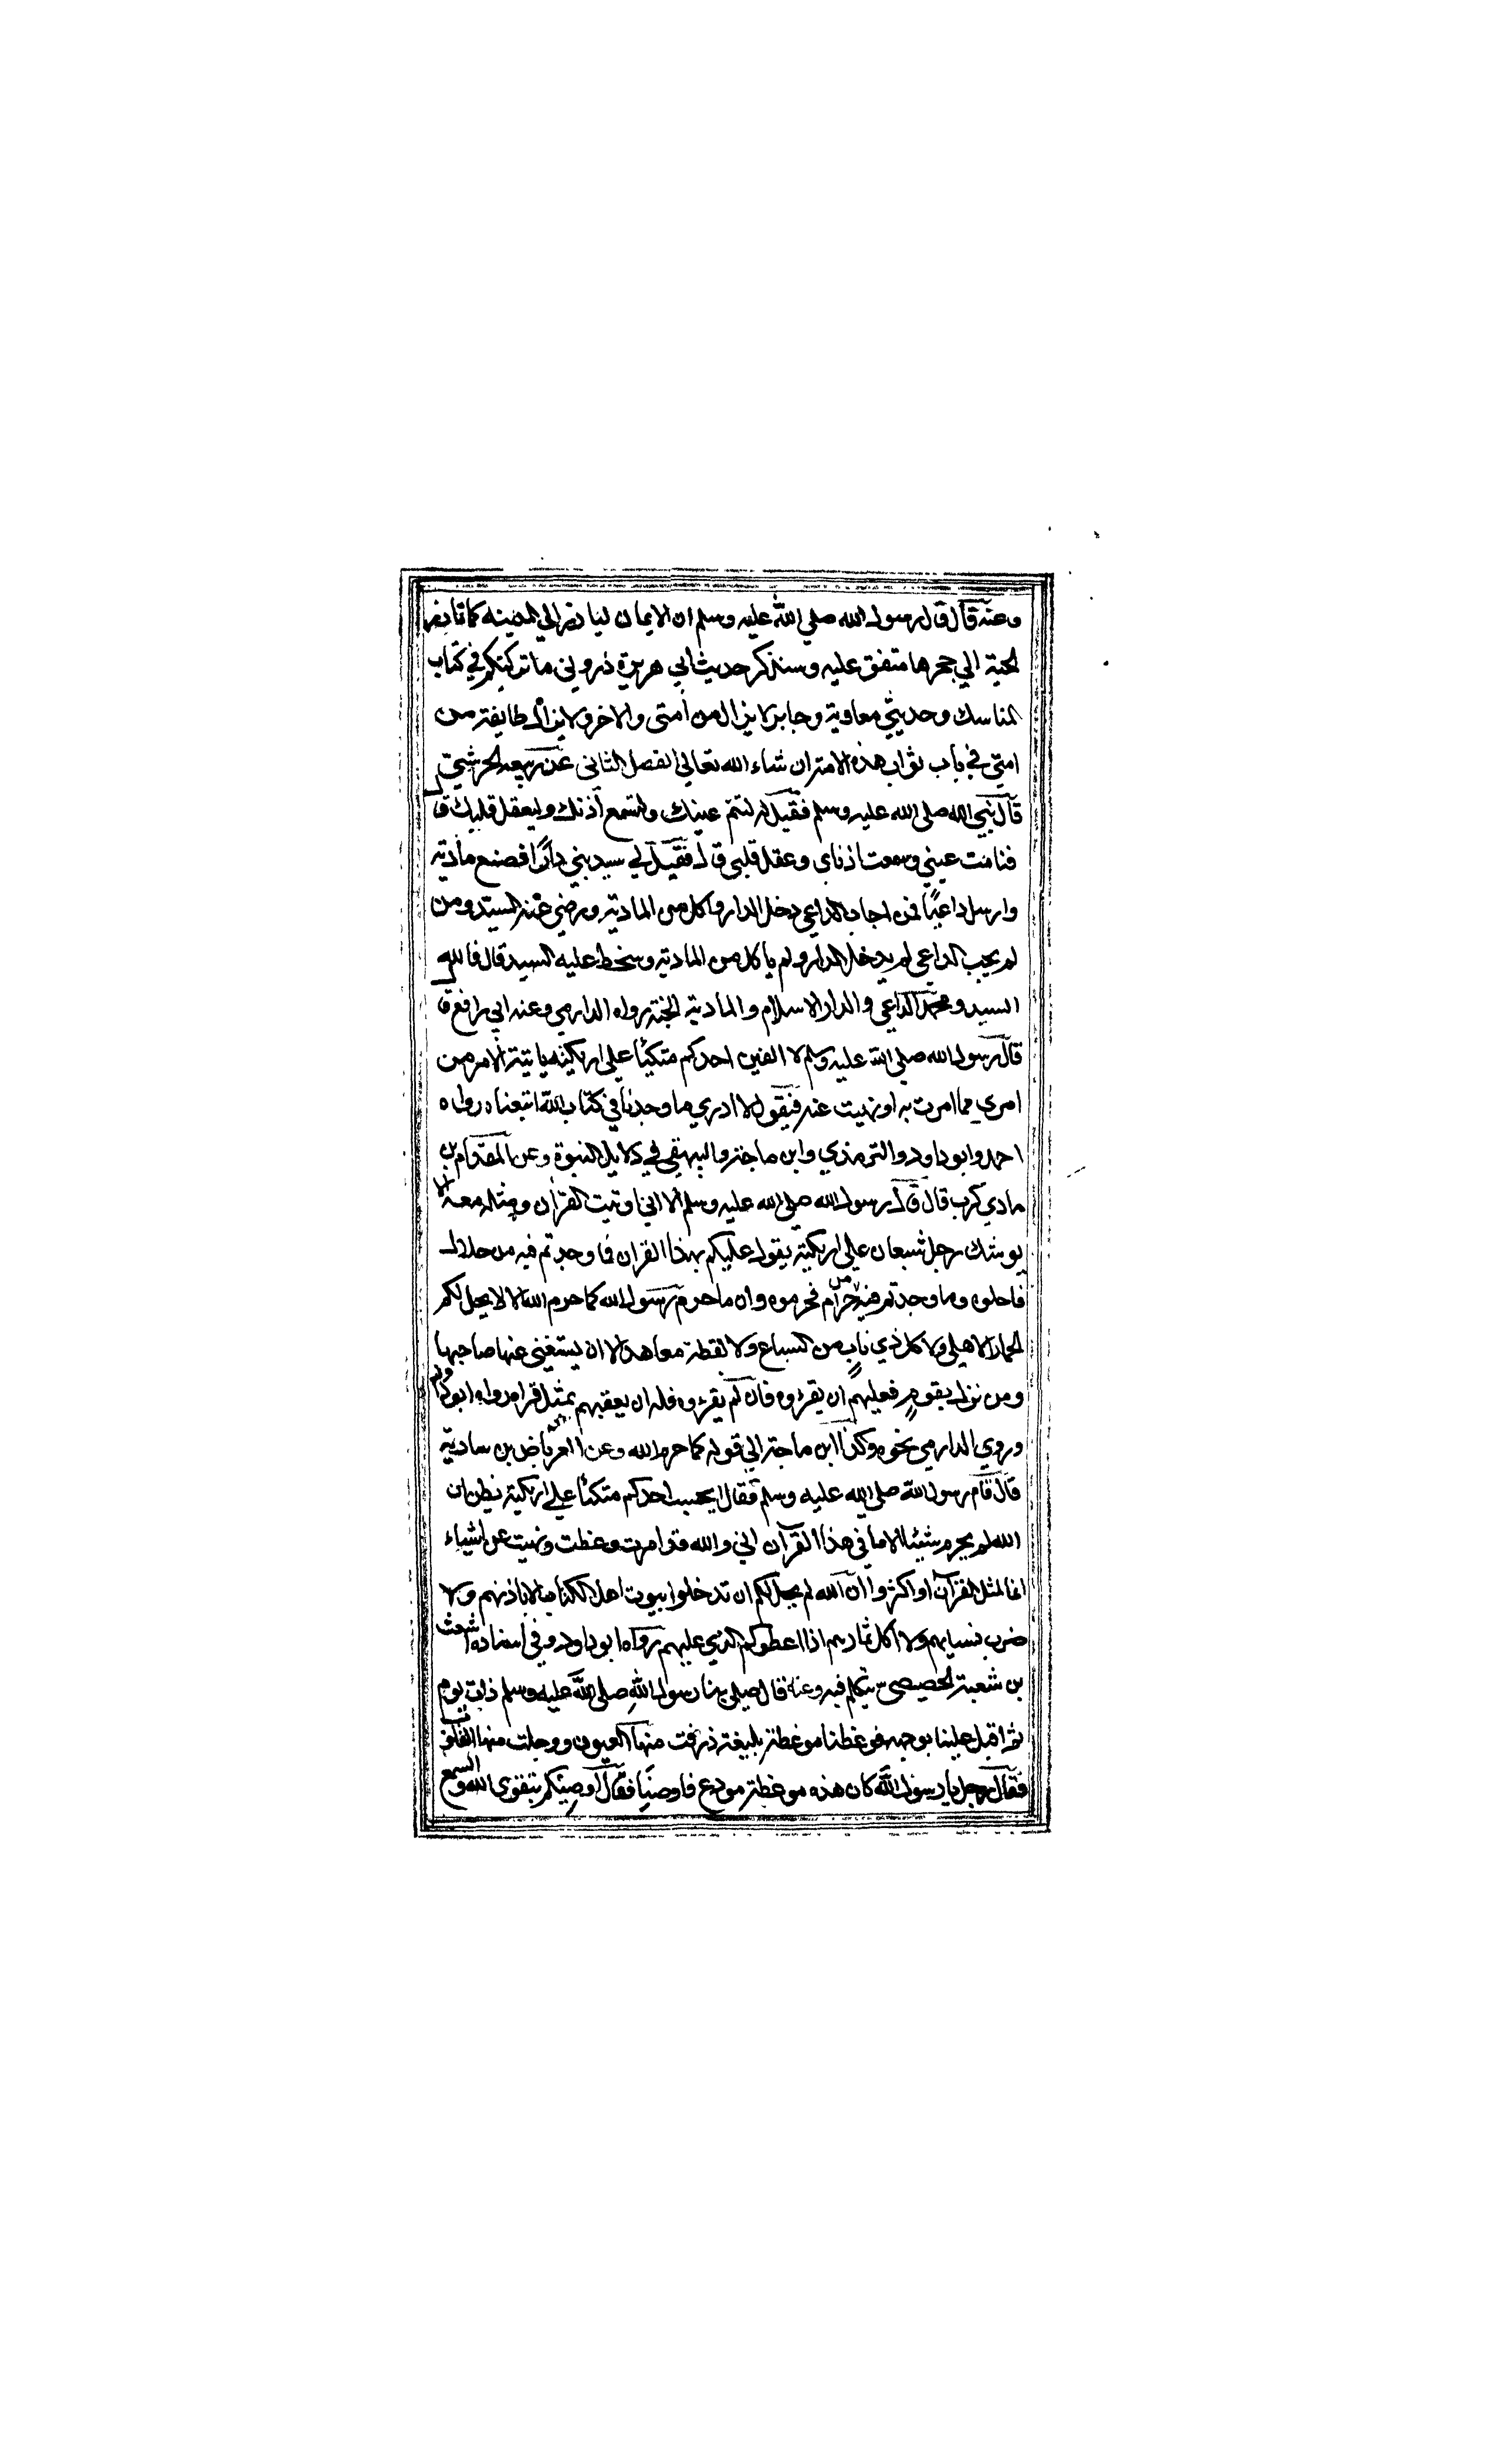 وعنه قال قال رسول الله صلي الله عليه وسلم ان الايمان ليارز الي المدينه كما تارز
الحية الي جحرها متفق عليه وسنذكر حديث ابي هريرة ذروني ما تركتكم في كتاب
المناسك وحديثي معاوية وجابر لا يزال من أمتي والاخر ولا يزال طايفة من
امتي في باب ثواب هذه الامة ان شاء الله تعالي الفصل الثاني عن ربيعه الحرشي
قال نبي الله صلى الله عليه وسلم فقيل له لتنم عينك ولتسمع أذنك وليعقل قلبك قا
فنامت عيني وسمعت اذناي وعقل قلبي قال فقيل لي سيد بني دارًا فصنع مادبة
وارسل داعيًا فمن اجاب الداعي دخل الدار واكل من المادبة ورضي عنه السيد ومن
لم يجب الداعي لم يدخل الدار ولم ياكل من المادبة وسخط عليه السيد قال فالله
السيد ومحمد الداعي والدار الاسلام والمادبة الجنة رواه الدارمي وعنه ابي رافع قا
قال رسول الله صلي الله عليه وسلم لا الفين احدكم متكئا علي اريكته ياتيه الامر من
امري مما امرت به او نهيت عنه فيقول لا ادري ما وجدنا في كتاب الله اتبعناه رواه
احمد وابو داود والترمذي وابن ماجة والبيهقي في دلايل النبوة وعن المقدام بن
مادي كرب قال قال رسول الله صلي الله عليه وسلم الا اني اوتيت القرآن ومثله معه الا
يوشك رجل شبعان علي اريكته يقول عليكم بهذا القران فما وجدتم فيه من حلال
فاحلوه وما وجدتم فيه من حرام فحرموه وان ما حرم رسول الله كما حرم الله الا لا يحل لكم
الحمار الاهلي ولا كل ذي ناب من السباع ولا لقطة معاهد الا ان يستغني عنها صاحبها
ومن نزل بقوم فعليهم ان يقروه فان لم يقروه فله ان يعقبهم بمثل قراه رواه ابو داود
وروي الدارمي نحوه وكذا ابن ماجة الي قوله كما حرم الله وعن العرباض بن سادية
قال قام رسول الله صلي الله عليه وسلم فقال ايحسب احدكم متكئا علي اريكته يظن ان
الله لم يحرم شيئا الا ما في هذا القرآن الي والله قد امرت وعظت ونهيت عن اشياء
انها لمثل القرآن او اكثر وان الله لم يحل لكم ان تدخلوا بيوت اهل الكتاب الا باذنهم ولا
ضرب نسايهم ولا اكل ثمارهم اذا اعطوكم الذي عليهم رواه ابو داود وفي اسناده اشعث
بن شعبة المصيصي تكلم فيه وعنه قال صلي بنا رسول الله صلي الله عليه وسلم ذات يوم
ثم اقبل علينا بوجهه فوعظنا موعظة بليغة ذرفت منها العيون ووجلت منها القلوب
فقال رجل يا رسول الله كان هذه موعظة مودع فاوصنا فقال اوصيكم بتقوي الله والسمع